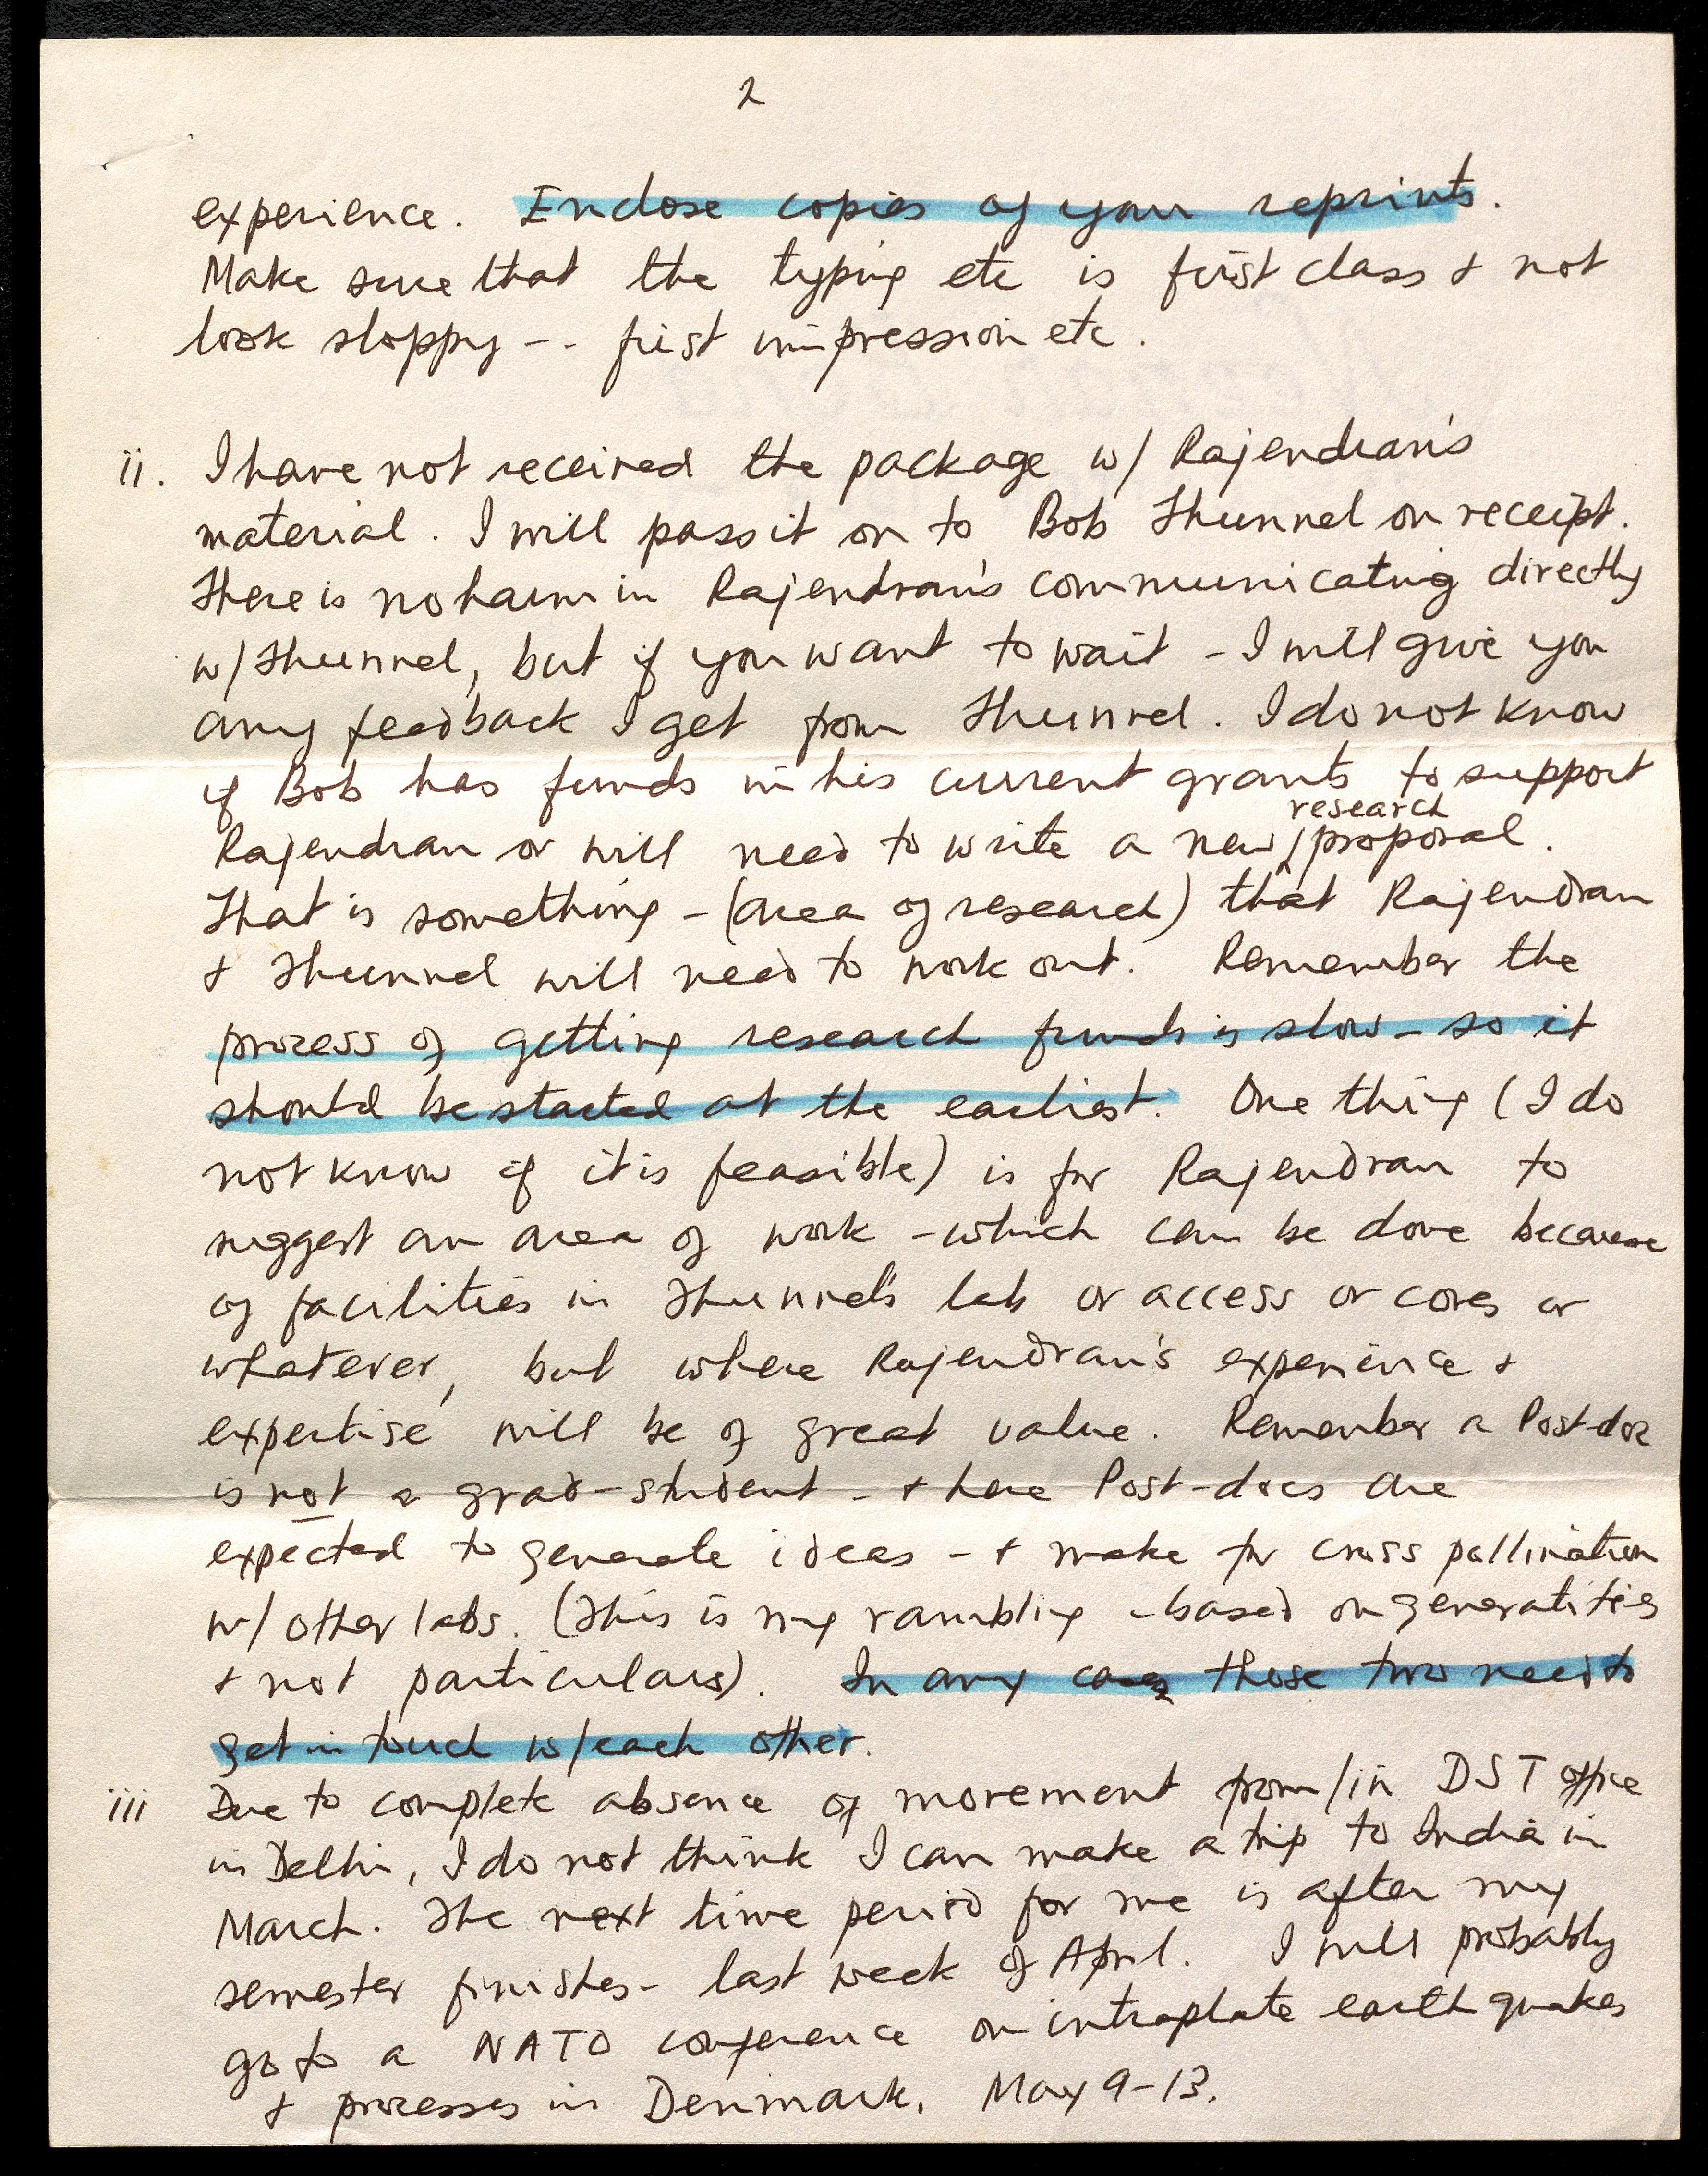 2
experience. Enclose copies of your reprints.
Make sure that the typing etc is first class & not
look sloppy -- first impression etc.
ii. I have not received the package w/ Rajendran's
material. I will pass it on to Bob Thunnel on receipt.
There is no harm in Rajendran's communicating directly
w/ Thunnel, but if you want to wait - I will give you
any feedback I get from Thunnel. I do not know
if Bob has funds in his current grants to support
Rajendran or will need to write a new research proposal.
That is something - (area of research) that Rajendran
& Thunnel will need to work out. Remember the
process of getting research funds is slow - so it
should be started at the earliest. One thing (I do
not know if it is feasible) is for Rajendran to
suggest an area of work - which can be done because
of facilities in Thunnel's lab or access or cores or
whatever, but where Rajendran's experience &
expertise will be of great value. Remember a Post-doc
is not a grad-student - & here Post-docs are
expected to generate ideas - & make for cross pollination
w/ other labs. (This is my rambling - based on generalities
& not particulars). In any case those two need to
get in touch w/ each other.
iii Due to complete absence of movement from/in DST office
in Delhi, I do not think I can make a trip to India in
March. The next time period for me is after my
semester finishes - last week of April. I will probably
go to a NATO conference on intraplate earthquakes
& processes in Denmark, May 9-13.